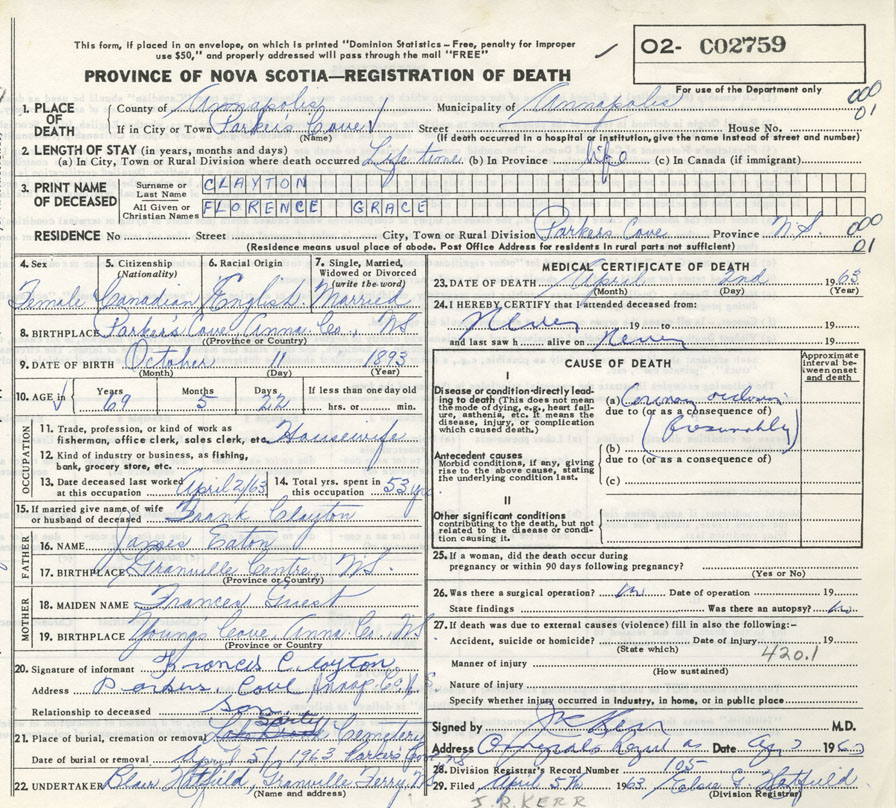 This form, if placed in an envelope, on which is printed "Dominion Statistics – Free, penalty for improper
use $50," and properly addressed will pass through the mail "FREE"
PROVINCE OF NOVA SCOTIA—REGISTRATION OF DEATH
O2- C02759
For use of the Department only
000
01
1. PLACE OF DEATH
County of Annapolis Municipality of Annapolis
If in City or Town Parker's Cove Street House No.
(Name) (If death occurred in a hospital or institution, give the name instead of street and number)
2. LENGTH OF STAY (in years, months and days)
(a) In City, Town or Rural Division where death occurred Life time (b) In Province life (c) In Canada (if immigrant)
3. PRINT NAME OF DECEASED
Surname or Last Name CLAYTON
All Given or Christian Names FLORENCE GRACE
RESIDENCE No Street City, Town or Rural Division Parkers Cove Province N.S.
000
01
(Residence means usual place of abode. Post Office Address for residents in rural parts not sufficient)
4. Sex 5. Citizenship (Nationality) 6. Racial Origin 7. Single, Married, Widowed or Divorced (write the word)
Female Canadian English Married
8. BIRTHPLACE Parker's Cove Anna Co., NS
(Province or Country)
9. DATE OF BIRTH October 11 1893
(Month) (Day) (Year)
10. AGE in Years Months Days If less than one day old
69 5 22 hrs. or min.
OCCUPATION
11. Trade, profession, or kind of work as
fisherman, office clerk, sales clerk, etc. Housewife
12. Kind of industry or business, as fishing,
bank, grocery store, etc.
13. Date deceased last worked at this occupation April 2/63 14. Total yrs. spent in this occupation 53 yrs
15. If married give name of wife or husband of deceased Frank Clayton
FATHER
16. NAME James Eaton
17. BIRTHPLACE Granville Centre, N.S.
(Province or Country)
MOTHER
18. MAIDEN NAME Frances Guest
19. BIRTHPLACE Youngs Cove, Anna Co., NS
(Province or Country)
20. Signature of informant Francis Clayton
Address Parkers Cove Annap Co N.S.
Relationship to deceased Son
21. Place of burial, cremation or removal Cemetery
Date of burial or removal April 5, 1963 Parkers Cove NS
22. UNDERTAKER Blair Hatfield, Granville Ferry NS
(Name and address)
MEDICAL CERTIFICATE OF DEATH
23. DATE OF DEATH April 2nd 1963
(Month) (Day) (Year)
24. I HEREBY CERTIFY that I attended deceased from:
Never 19 to 19
and last saw h alive on Never 19
CAUSE OF DEATH
Approximate interval between onset and death
I
Disease or condition directly leading to death (This does not mean the mode of dying, e.g., heart failure, asthenia, etc. It means the disease, injury, or complication which caused death.)
(a) Coronary occlusion
due to (or as a consequence of)
(Presumably)
Antecedent causes
Morbid conditions, if any, giving rise to the above cause, stating the underlying condition last.
(b)
due to (or as a consequence of)
(c)
II
Other significant conditions
contributing to the death, but not related to the disease or condition causing it.
25. If a woman, did the death occur during
pregnancy or within 90 days following pregnancy?
(Yes or No)
26. Was there a surgical operation? no Date of operation 19
State findings Was there an autopsy? no
27. If death was due to external causes (violence) fill in also the following:–
Accident, suicide or homicide? Date of injury 19
(State which)
420.1
Manner of injury
(How sustained)
Nature of injury
Specify whether injury occurred in industry, in home, or in public place
Signed by J R Kerr M.D.
Address Annapolis Royal NS Date 19
28. Division Registrar's Record Number 105
29. Filed April 5th 1963 Elsie G Hatfield
(Division Registrar)
J.R. KERR